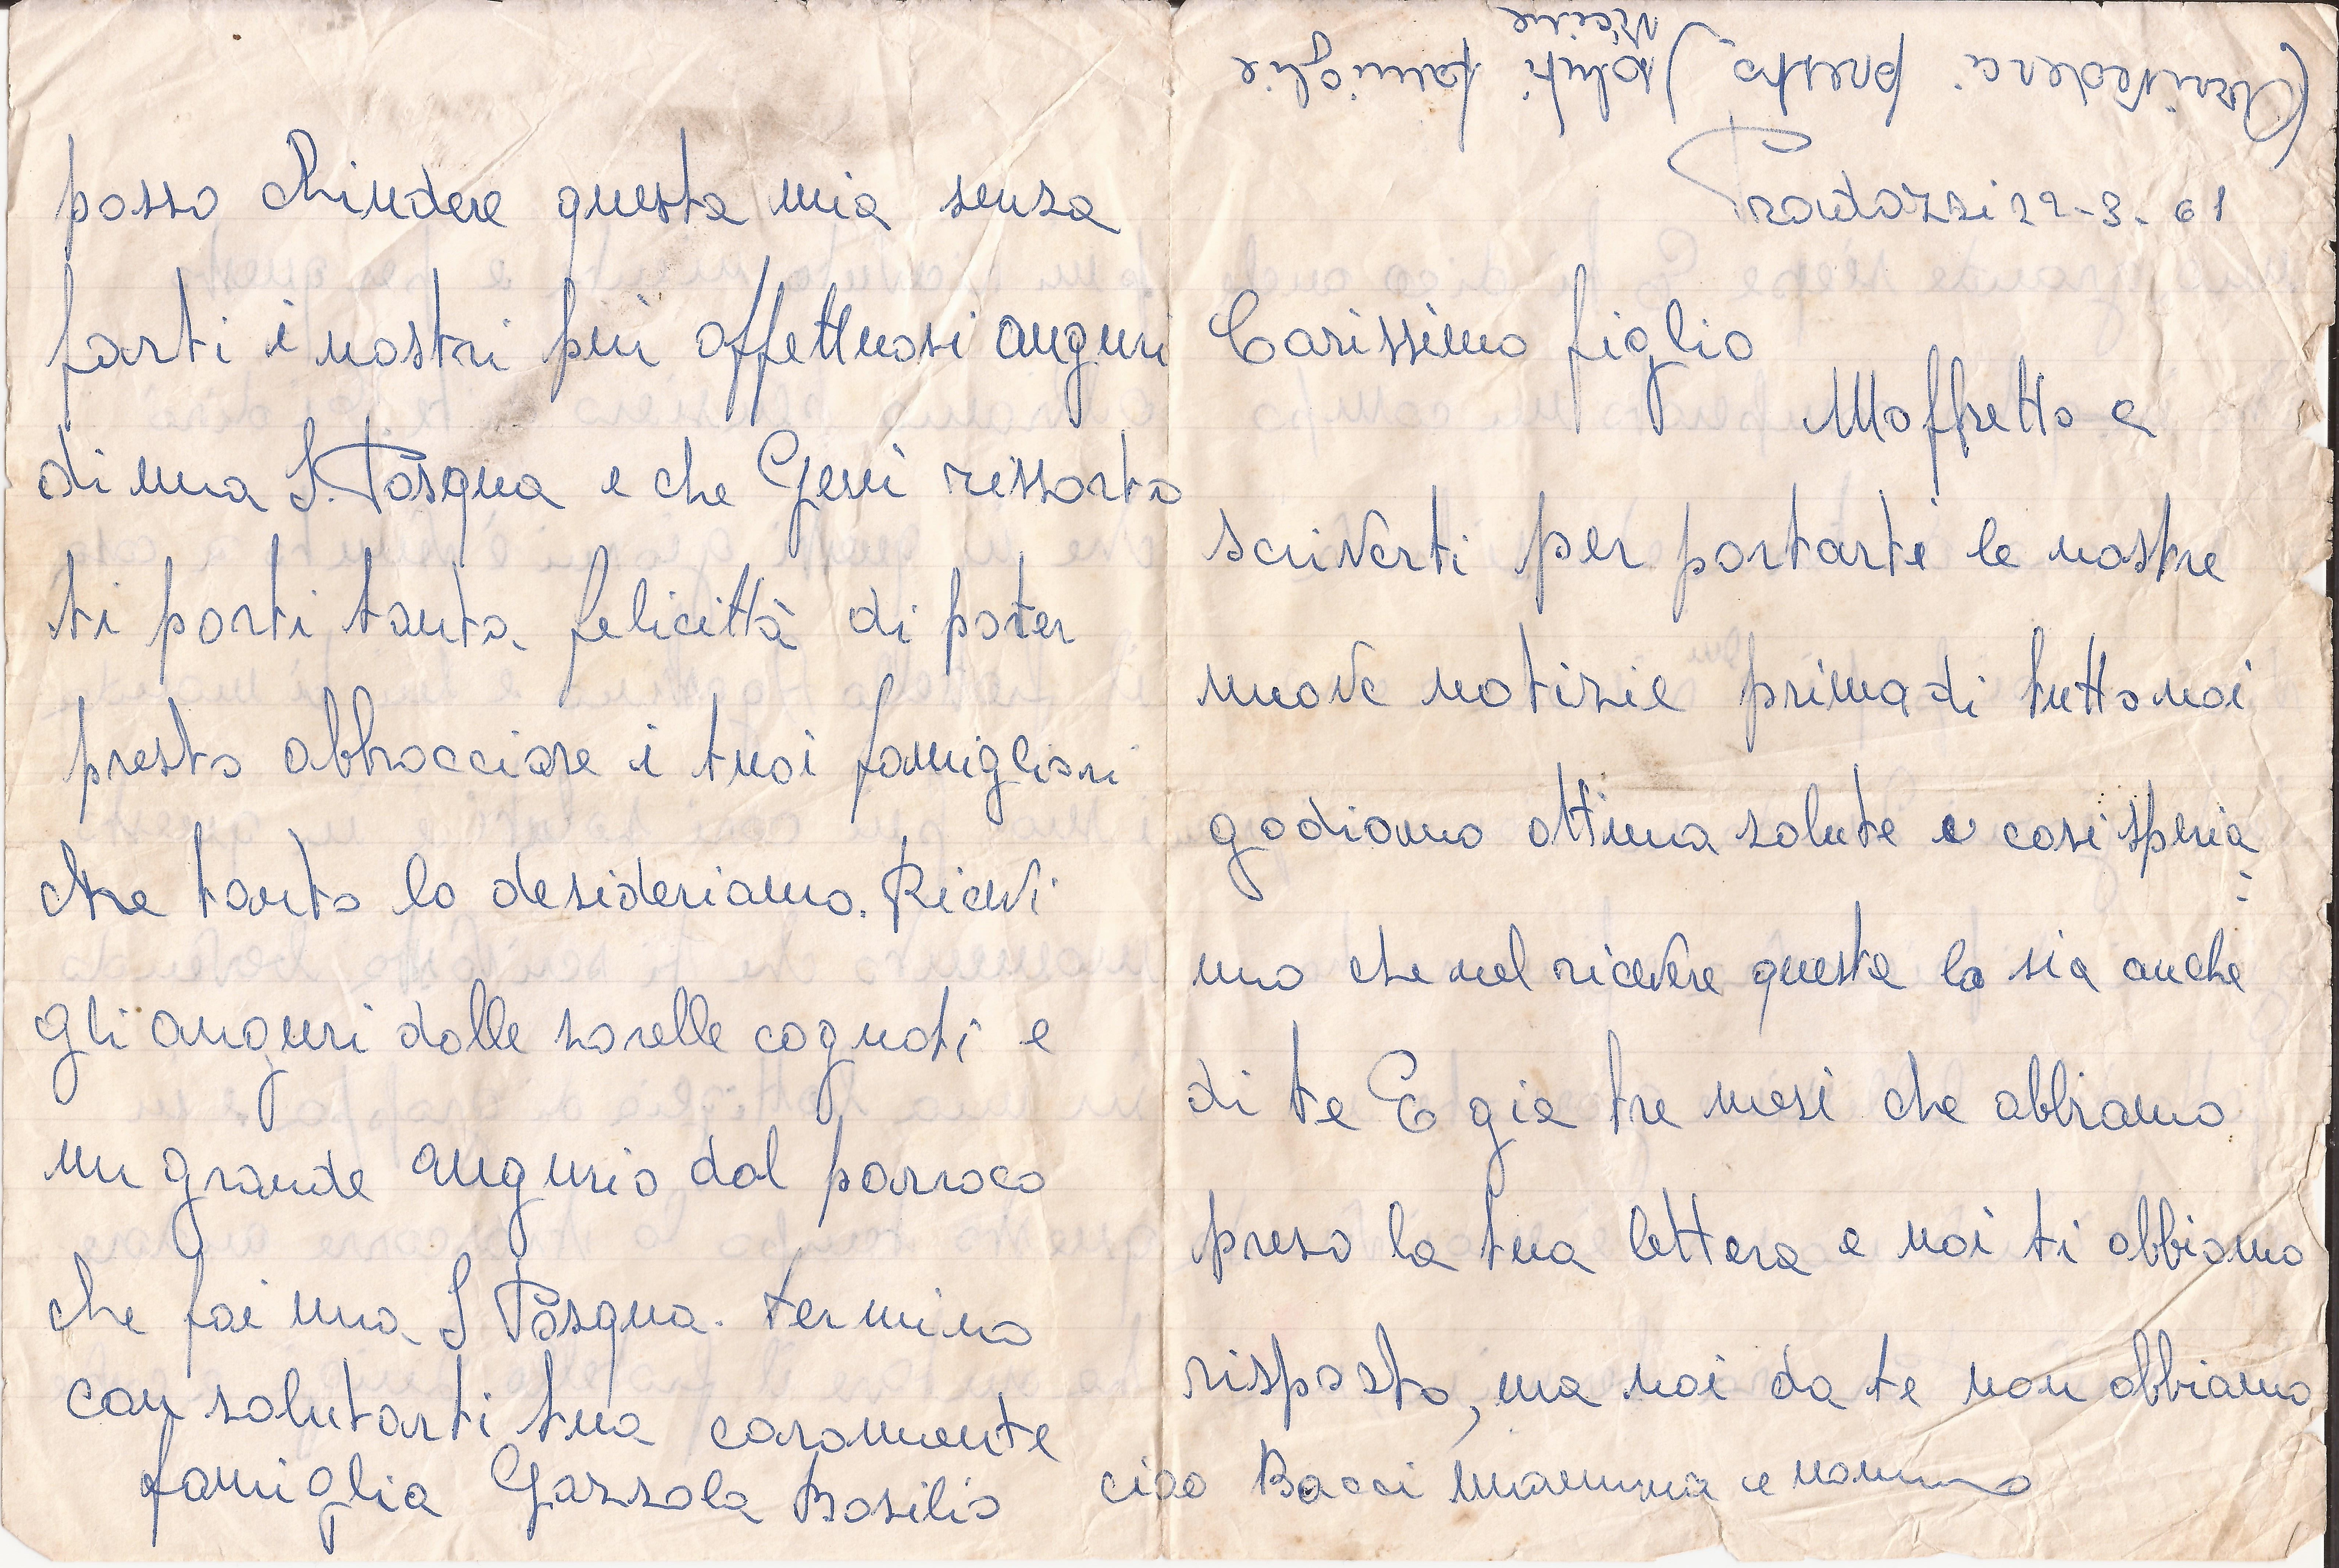 Prandozzi 22-3-61
Carissimo figlio
Moffretto a
scriverti per portarti le nostre
nuove notizie prima di tutto noi
godiamo ottima salute e così speria=
mo che nel ricevere questa lo sia anche
di te E gia tre mesi che abbiamo
preso la tua lettera e noi ti abbiamo
risposto, ma noi da te non abbiamo
posso chiudere questa mia senza
farti i nostri più affettuosi auguri
di una S. Pasqua e che Gesù rissorto
ti porti tanta felicittà di poter
presto abbracciare i tuoi famigliari
che tanto lo desideriamo. Ricevi
gli auguri dalle sorelle cognati e
un grande augurio dal parroco
che fai una S Pasqua. termino
con salutarti tua caramente
famiglia Gazzola Basilio
ciao Bacci mamma e nonno
Arrivederci presto saluti famiglie
vicine